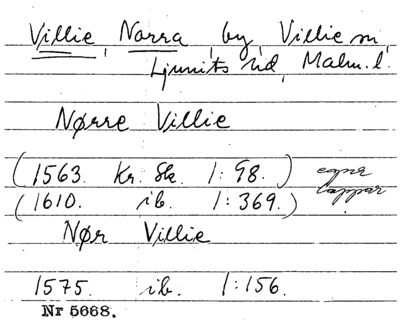 Villie, Norra, by, Villie sn
Ljunits hd, Malm. l.
Nørre Villie
(1563. Kr. Sk. 1:98.) egna
(1610. ib. 1:369.) lappar
Nør Villie
1575. ib. 1:156.
Nr 5668.